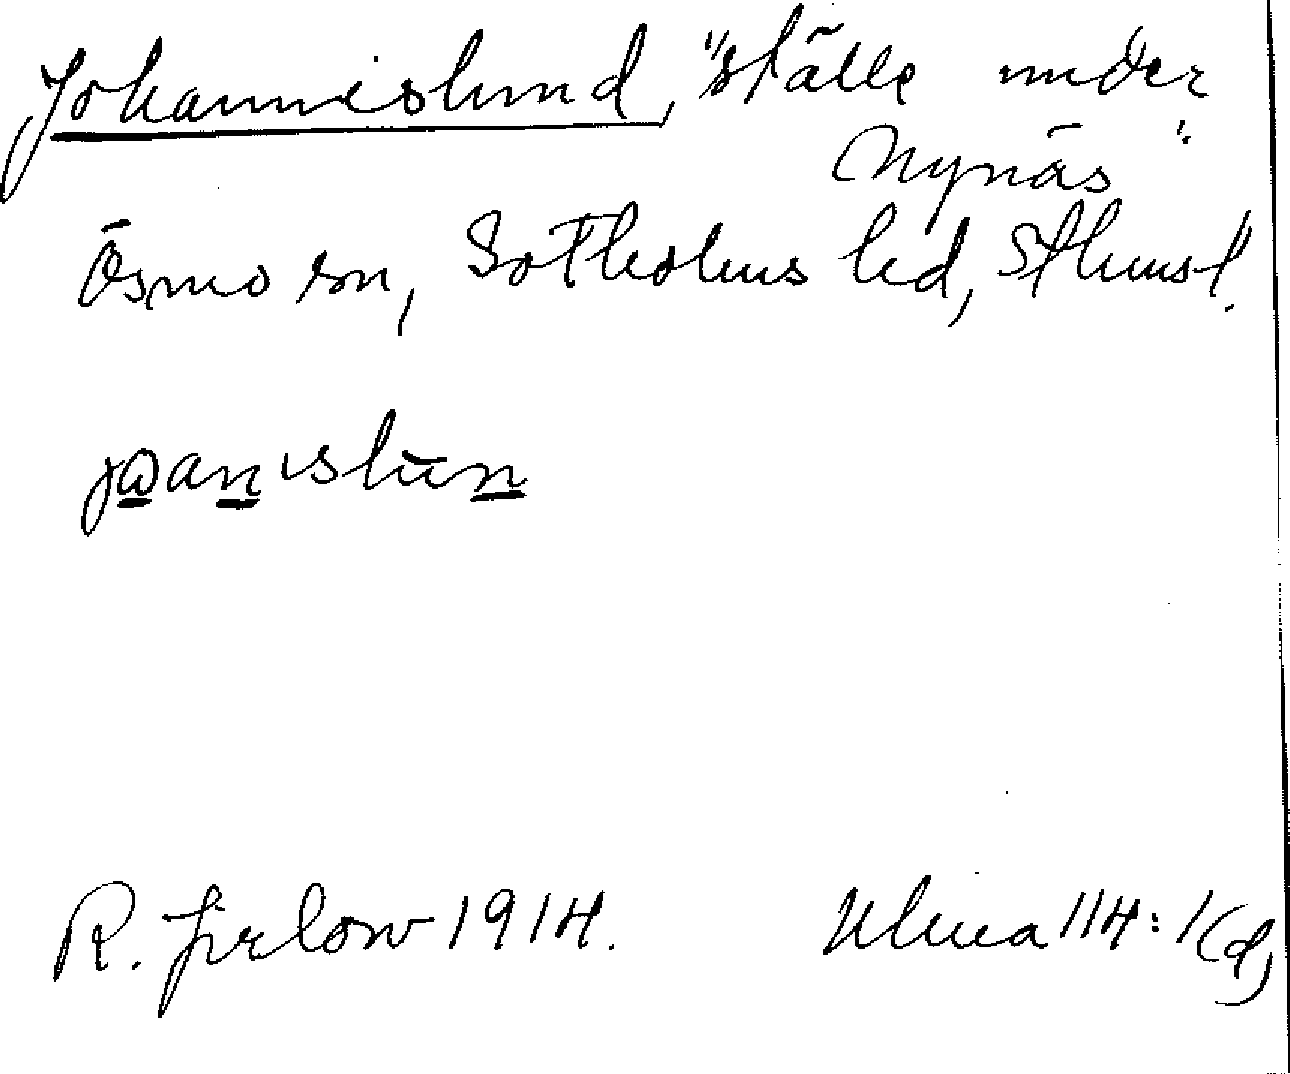 Johannislund, "ställe under
Nynäs".
Ösmo sn, Sotholms hd, Sthmsl.
jωanıslūn
R. Jirlow 1914. Ulma 114:1(d)